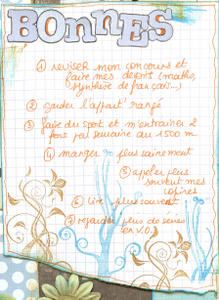 BONNES
① réviser mon concours et
faire mes devoirs (maths,
synthèse de français...)
② garder l'appart rangé
③ faire du sport et m'entraîner 2
fois par semaine du 1500 m
④ manger plus sainement
⑤ appeler plus
souvent mes
copines
⑥ lire plus souvent
⑦ regarder plus de séries
en V.O.